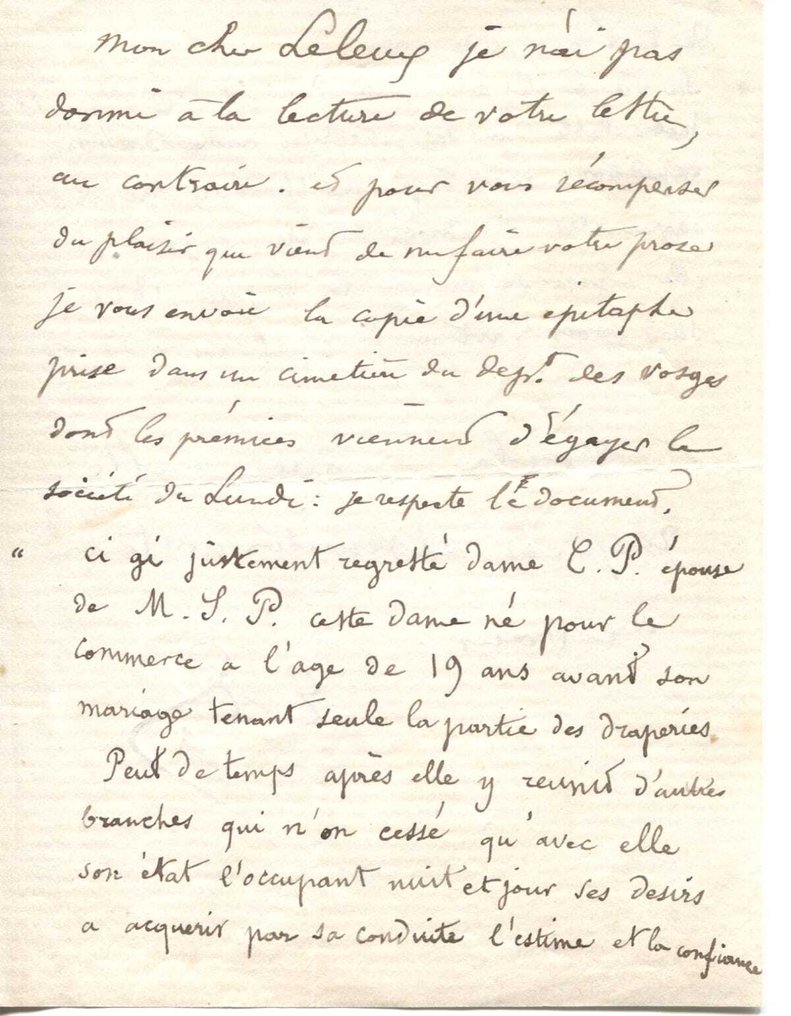 mon cher Leleux je n'ai pas
dormi à la lecture de votre lettre,
au contraire. et pour vous récompenser
du plaisir que vient de me faire votre prose
je vous envoie la copie d'une épitaphe
prise dans un cimetière du dept. des vosges
dont les prémices viennent d'égayer la
société du Lundi : je respecte le document.
" ci gi justement regretté dame C. P. épouse
de M. S. P. cette dame né pour le
commerce a l'age de 19 ans avant son
mariage tenant seule la partie des draperies.
Peut de temps après elle y reunit d'autres
branches qui n'on cessé qu'avec elle
son état l'occupant nuit et jour ses desirs
a acquerir par sa conduite l'estime et la confiance